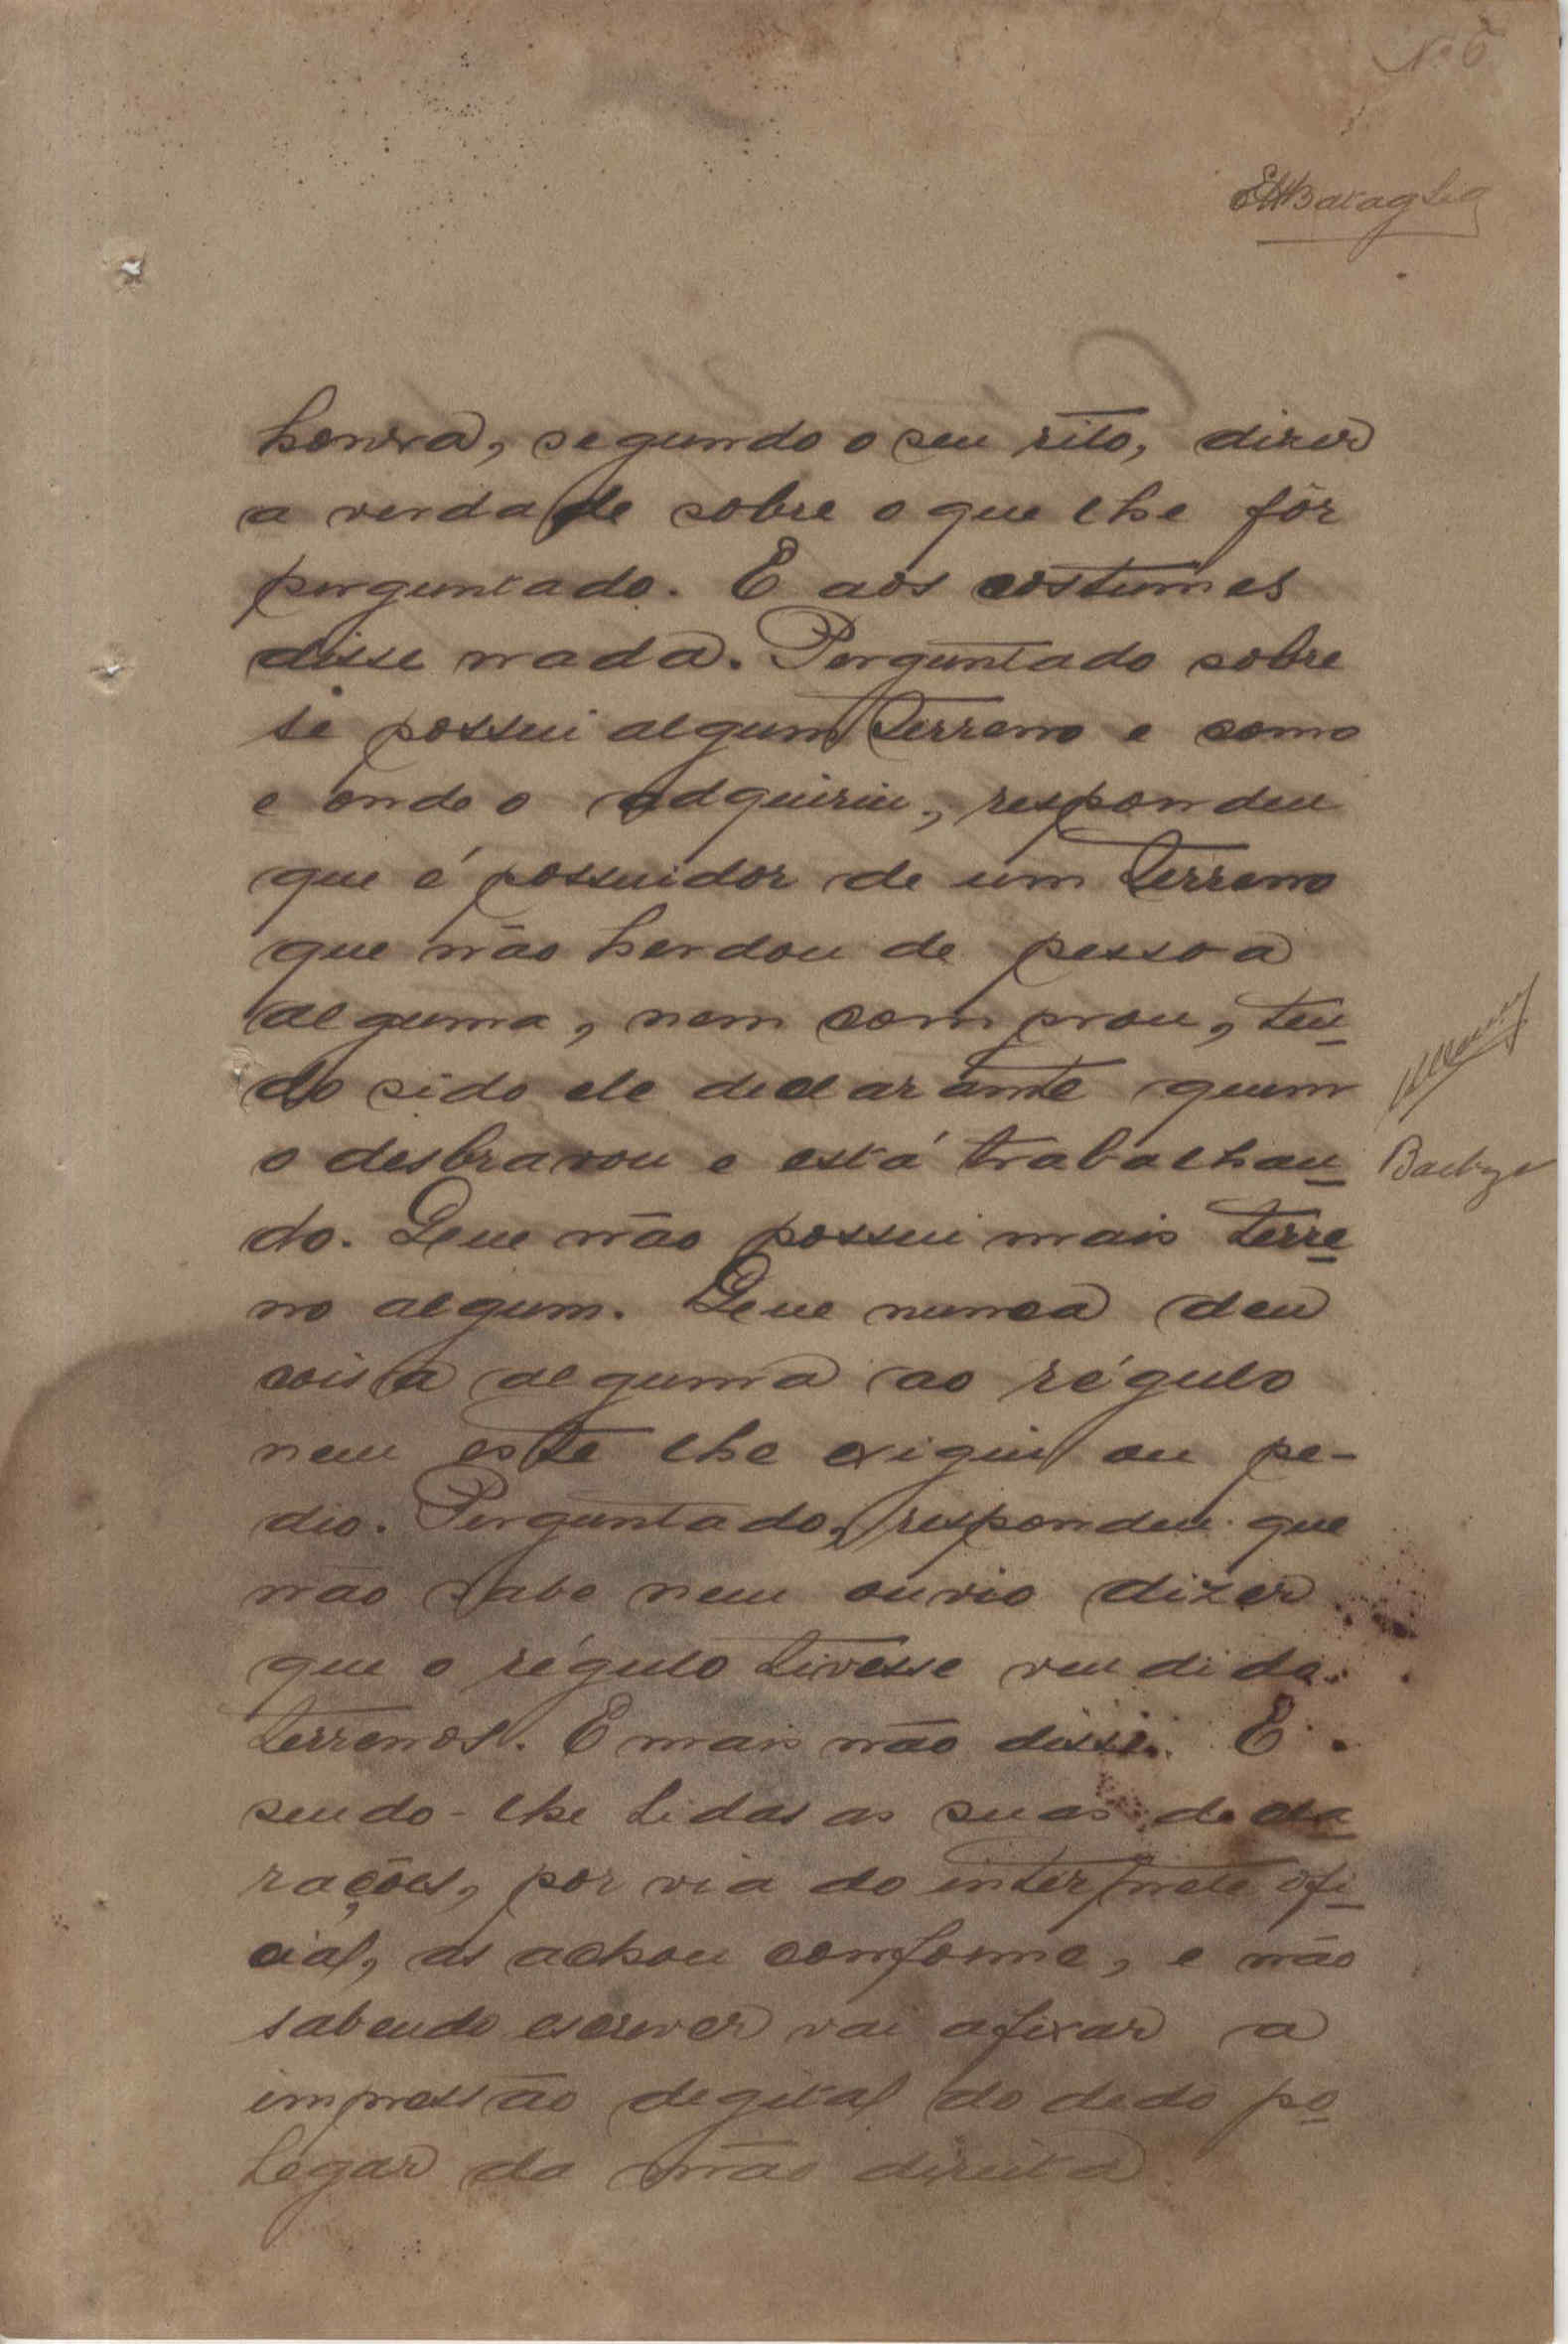 Nº 6
honra, segundo o seu rito, dizer
a verdade sobre o que lhe fôr
perguntado. E aos costumes
disse nada. Perguntado sobre
se possui algum terreno e como
e onde o adquiriu, respondeu
que é possuidor de um terreno
que não herdou de pessoa
alguma, nem comprou, ten-
do sido ele declarante quem
o desbravou e está trabalhan-
do. Que não possui mais terre-
no algum. Que nunca deu
coisa alguma ao régulo
nem este lhe exigiu ou pe-
dio. Perguntado, respondeu que
não sabe nem ouvio dizer
que o régulo tivesse vendido
terrenos. E mais não disse. E
sendo-lhe lidas as suas decla-
rações, por via do interprete ofi-
cial, as achou conforme, e não
sabendo escrever vai afixar a
impressão degital do dedo po-
legar da mão direita